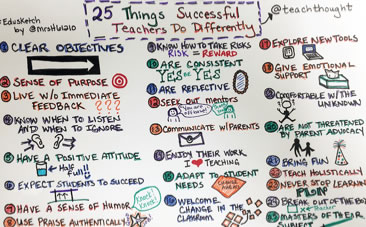 Edusketch
by @mrsh61210
25 Things Successful
Teachers Do Differently
@teachthought
1 CLEAR OBJECTIVES
2 SENSE OF PURPOSE
3 LIVE W/O IMMEDIATE
FEEDBACK ???
4 KNOW WHEN TO LISTEN
AND WHEN TO IGNORE
5 HAVE A POSITIVE ATTITUDE
Half
Full!!
6 EXPECT STUDENTS TO SUCCEED
7 HAVE A SENSE OF HUMOR
Knock
Knock!
8 USE PRAISE AUTHENTICALLY
9 KNOW HOW TO TAKE RISKS
RISK = REWARD
10 ARE CONSISTENT
YES BE YES
11 ARE REFLECTIVE
12 SEEK OUT MENTORS
13 COMMUNICATE W/PARENTS
14 ENJOY THEIR WORK
I ♥ TEACHING
15 ADAPT TO STUDENT
NEEDS
16 WELCOME
CHANGE IN THE
CLASSROOM
17 EXPLORE NEW TOOLS
18 GIVE EMOTIONAL
SUPPORT
19 COMFORTABLE W/THE
UNKNOWN
20 ARE NOT THREATENED
BY PARENT ADVOCACY
21 BRING FUN
22 TEACH HOLISTICALLY
23 NEVER STOP LEARNING
24 BREAK OUT OF THE BOX
Teacher
25 MASTERS OF THEIR
SUBJECT